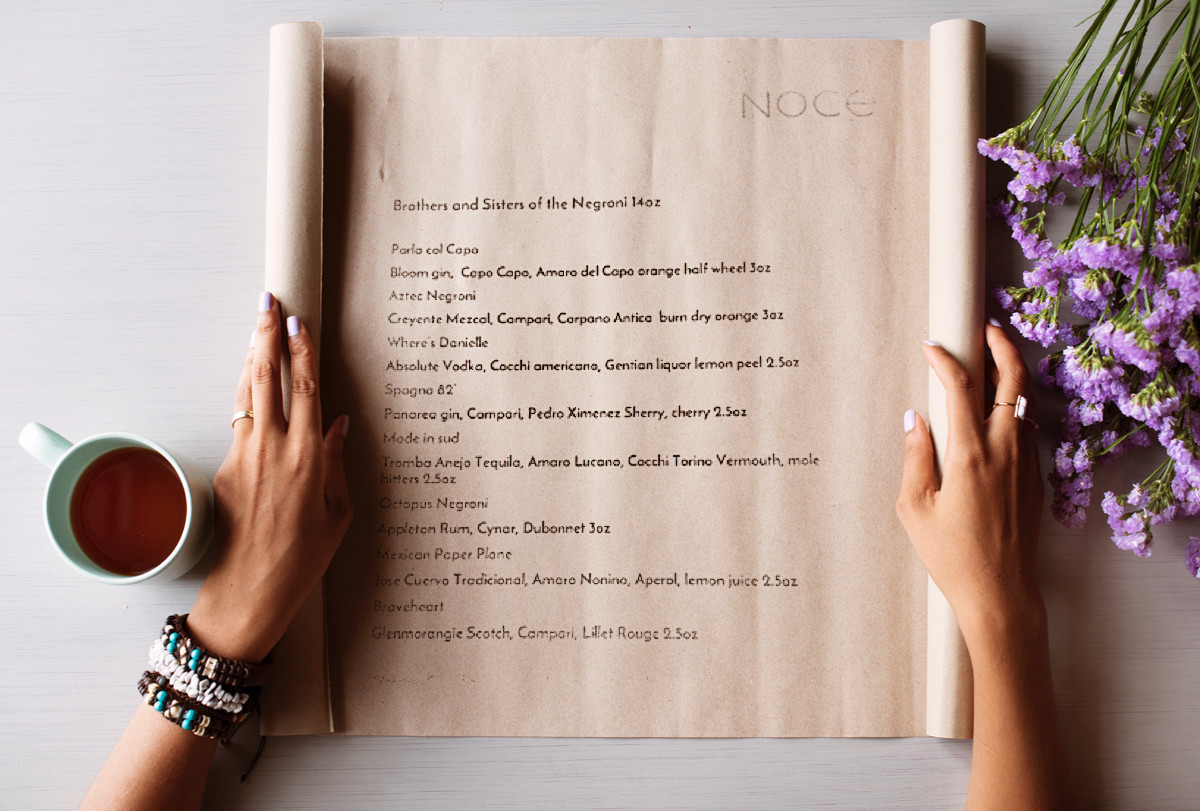 NOCE
Brothers and Sisters of the Negroni 14oz
Parla col Capo
Bloom gin, Capo Capo, Amaro del Capo orange half wheel 3oz
Aztec Negroni
Creyente Mezcal, Campari, Carpano Antica burn dry orange 3oz
Where's Danielle
Absolute Vodka, Cocchi americano, Gentian liquor lemon peel 2.5oz
Spagna 82'
Panarea gin, Campari, Pedro Ximenez Sherry, cherry 2.5oz
Made in sud
Tromba Anejo Tequila, Amaro Lucano, Cocchi Torino Vermouth, mole
bitters 2.5oz
Octopus Negroni
Appleton Rum, Cynar, Dubonnet 3oz
Mexican Paper Plane
Jose Cuervo Tradicional, Amaro Nonino, Aperol, lemon juice 2.5oz
Braveheart
Glenmorangie Scotch, Campari, Lillet Rouge 2.5oz